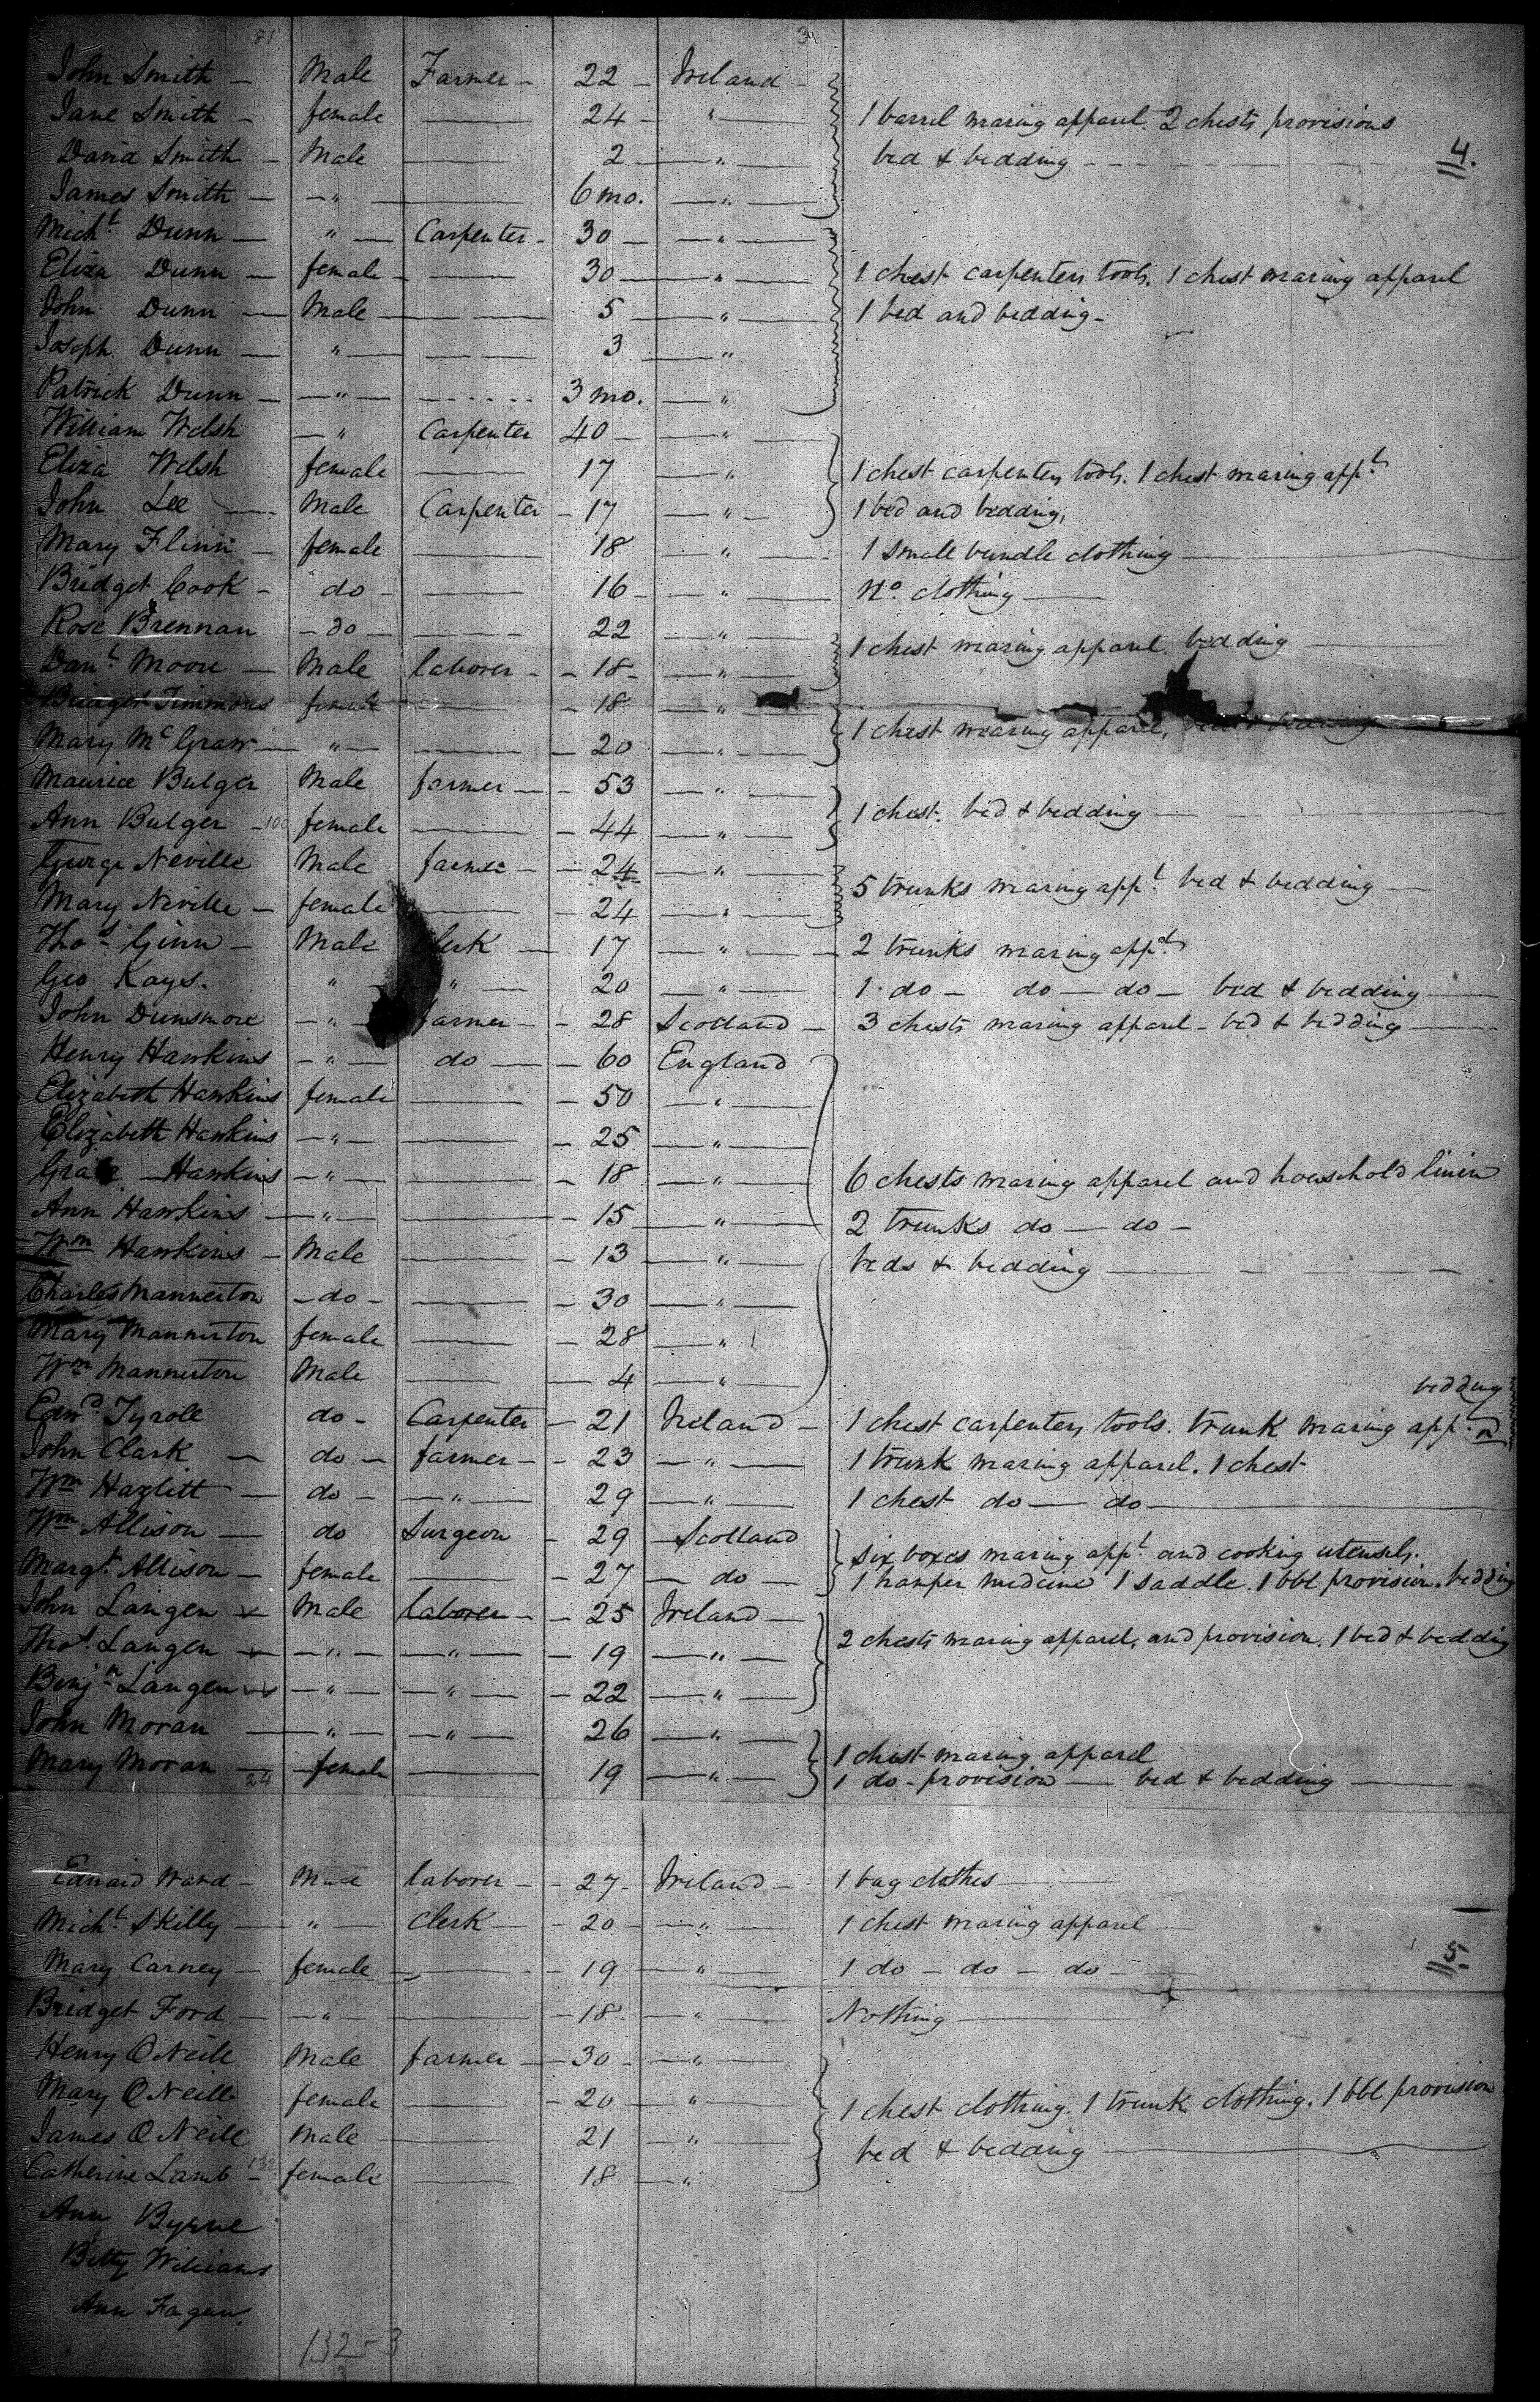 81 34
John Smith — Male Farmer — 22 — Ireland
Jane Smith — female —— 24 — " —— 1 barrel wearing apparel. 2 chests provisions
David Smith — Male —— 2 — " —— bed & bedding — — — 4.
James Smith — — " —— 6 mo. — " ——
Michl Dunn — " — Carpenter — 30 — — " ——
Eliza Dunn — female — —— 30 — " —— 1 chest carpenters tools. 1 chest wearing apparel
John Dunn — Male — —— 5 — " —— 1 bed and bedding —
Joseph Dunn — " — —— 3 — "
Patrick Dunn — — " — ..... 3 mo. — "
William Welsh — " Carpenter 40 — — " —
Eliza Welsh female —— 17 — " 1 chest carpenters tools. 1 chest wearing appl
John Lee — Male Carpenter — 17 — " — 1 bed and bedding,
Mary Flinn — female —— 18 — " — 1 small bundle clothing ——
Bridget Cook — do — —— 16 — — " — No clothing ——
Rose Brennan — do — —— 22 — " —
Danl Moore — Male laborer — — 18 — — " — 1 chest wearing apparel. bedding ——
Timmons female —— — 18 — "
Mary McGraw — " — —— — 20 — " — 1 chest wearing apparel, bedding
Maurice Bulger Male farmer — — 53 — " —
Ann Bulger — 100 female —— — 44 — " — 1 chest. bed & bedding ——
George Neville Male farmer — — 24 — " —
Mary Neville — female —— — 24 — " — 5 trunks wearing appl bed & bedding —
Thos Ginn — Male Clerk — 17 — " — 2 trunks wearing appl
Geo Kays. " " — 20 — " — 1 do — do — do — bed & bedding ——
John Dunsmore — " — farmer — — 28 Scotland — 3 chests wearing apparel — bed & bedding ——
Henry Hawkins — " — do — — 60 England
Elizabeth Hawkins female —— — 50 — " —
Elizabeth Hawkins — " — —— — 25 — " —
Grace — Hawkins — " — —— — 18 — " — 6 chests wearing apparel and household linen
Ann Hawkins — " — —— — 15 — " — 2 trunks do — do —
Wm Hawkins — Male —— — 13 — " — beds & bedding —— — —
Charles Mannerton — do — —— — 30 — " —
Mary Mannerton female —— — 28 — "
Wm Mannerton Male —— — 4 — " — bedding
Edwd Tyrole do — Carpenter — 21 Ireland — 1 chest carpenters tools. trunk wearing app. nd
John Clark — do — farmer — — 23 — " — 1 trunk wearing apparel. 1 chest
Wm Hazlitt — do — — " — 29 — " — 1 chest do — do ——
Wm Allison — do Surgeon — 29 Scotland six boxes wearing appl and cooking utensils.
Margt Allison — female —— — 27 — do — 1 hamper medicine 1 saddle. 1 bbl provision. bedding
John Langen x Male laborer — — 25 Ireland —
Thos Langen x — " — — " — — 19 — " — 2 chests wearing apparel, and provision. 1 bed & bedding
Benjn Langen x — " — — " — — 22 — " —
John Moran — " — — " — 26 — " —
1 chest wearing apparel
Mary Moran 24 — female —— 19 — " — 1 do — provision — bed & bedding ——
Edward Ward — Male laborer — — 27 — Ireland — 1 bag clothes ——
Michl Skilly — " — Clerk — — 20 — — " — 1 chest wearing apparel ——
Mary Carney — female — —— — 19 — " — 1 do — do — do — 5.
Bridget Ford — — " — —— — 18 — " — Nothing ——
Henry O Neill Male farmer — — 30 — — " —
Mary O Neill female —— — 20 — " — 1 chest clothing. 1 trunk clothing. 1 bbl provision
James O Neill Male —— 21 — " — bed & bedding ——
Catherine Lamb — 132 female —— 18 — " —
Ann Byrne
Betty Williams
Ann Fagan
132 - 3
3